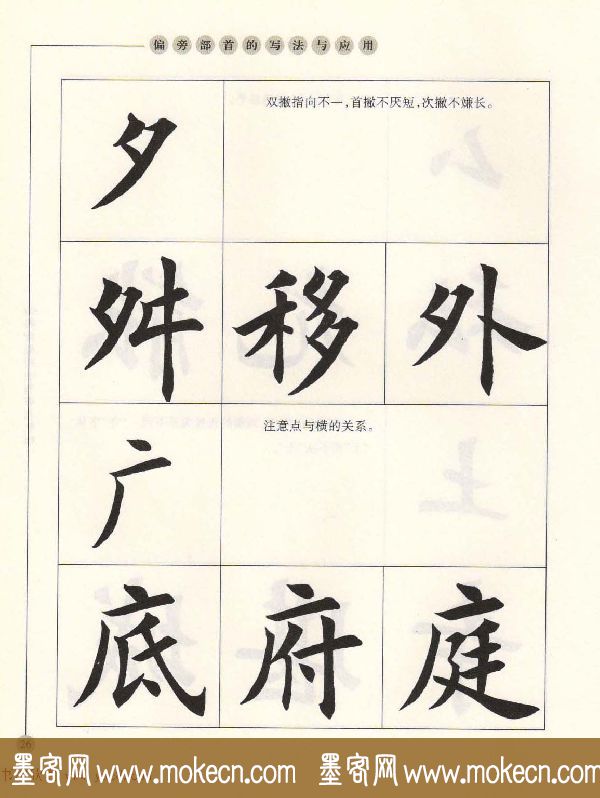 偏旁部首的写法与应用
夕
双撇指向不一，首撇不厌短，次撇不嫌长。
舛 移 外
广
注意点与横的关系。
底 府 庭
26
墨客网 www.mokecn.com 墨客网 www.mokecn.com